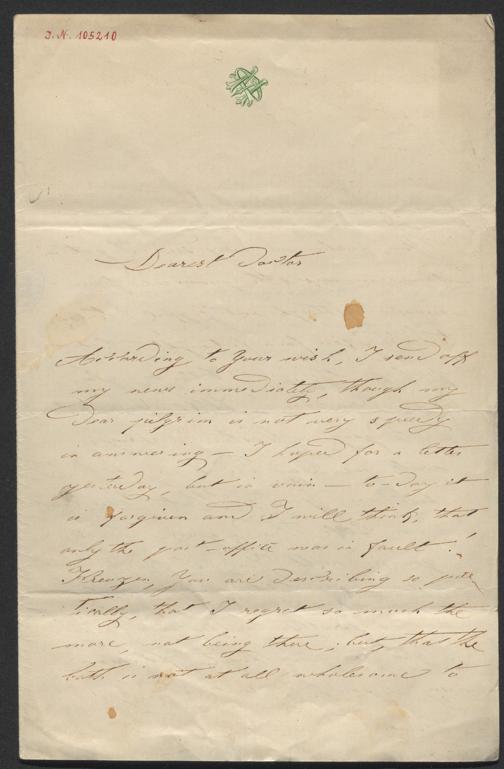 J. N. 105210
Dearest Doctor
According to your wish, I send off
my news immediately, though my
Dear pilgrim is not very speedy
in answering – I hoped for a letter
yesterday, but in vain – to-day it
is forgiven and I will think, that
only the post-office was in fault!
Kreuzen, You are describing so poe-
tically, that I regret so much the
more, not being there; but, that the
bath is not at all wholesome to